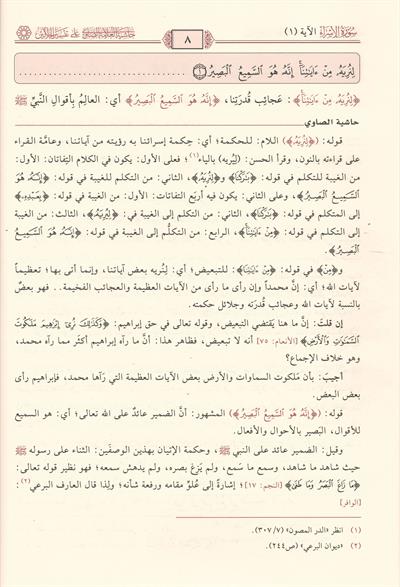 سورة الإسراء الآية (١)
٨
حاشية العلامة الصاوي على تفسير الجلالين
لِنُرِيَهُۥ مِنْ ءَايَٰتِنَآ إِنَّهُۥ هُوَ ٱلسَّمِيعُ ٱلْبَصِيرُ ﴿١﴾ ........................
﴿لِنُرِيَهُۥ مِنْ ءَايَٰتِنَآ﴾: عجائب قُدرَتِنا، ﴿إِنَّهُۥ هُوَ ٱلسَّمِيعُ ٱلْبَصِيرُ﴾ أي: العالِمُ بأقوالِ النبيِّ ﷺ
حاشية الصاوي
قوله: (﴿لِنُرِيَهُۥ﴾) اللام: للحكمة؛ أي: حِكمة إسرائنا به رؤيته من آياتنا، وعامَّة القراء
على قراءته بالنون، وقرأ الحسن: (لِيُريه) بالياء(١)؛ فعلى الأول: يكون في الكلام التِفاتان: الأول:
من الغَيبة للتكلم في قوله: ﴿بَٰرَكْنَا﴾ و﴿لِنُرِيَهُۥ﴾، الثاني: من التكلم للغيبة في قوله: ﴿إِنَّهُۥ هُوَ
ٱلسَّمِيعُ ٱلْبَصِيرُ﴾، وعلى الثاني: يكون فيه أربَع التفاتات: الأول: من الغَيبة في قوله: ﴿بِعَبْدِهِۦ﴾
إلى المتكلم في قوله: ﴿بَٰرَكْنَا﴾، الثاني: من التكلم إلى الغَيبة في: ﴿لِنُرِيَهُۥ﴾، الثالث: من الغَيبة
إلى التكلم في قوله: ﴿مِنْ ءَايَٰتِنَآ﴾، الرابع: من التكلُّم إلى الغَيبة في قوله: ﴿إِنَّهُۥ هُوَ ٱلسَّمِيعُ
ٱلْبَصِيرُ﴾.
و﴿مِنْ﴾ في قوله: ﴿مِنْ ءَايَٰتِنَآ﴾: للتبعيض؛ أي: لِنُريه بعض آياتنا، وإنما أتى بها؛ تعظيماً
لآيات الله؛ أي: إنَّ محمداً وإن رأى ما رأى من الآيات العظيمة والعجائب الفَخيمة.. فهو بعضٌ
بالنسبة لآيات الله وعجائب قُدرَته وجلائل حكمته.
إن قلتَ: إنَّ ما هنا يَقتضي التبعيض، وقوله تعالى في حق إبراهيم: ﴿وَكَذَٰلِكَ نُرِىٓ إِبْرَٰهِيمَ مَلَكُوتَ
ٱلسَّمَٰوَٰتِ وَٱلْأَرْضِ﴾ [الأنعام: ٧٥] أنه لا تبعيض، فظاهر هذا: أنَّ ما رآه إبراهيم أكثَر مما رآه محمد،
وهو خلاف الإجماع؟
أجيبَ: بأن مَلكوت السماوات والأرض بعض الآيات العظيمة التي رَآها محمد، فإبراهيم رأى
بعض البعض.
قوله: (﴿إِنَّهُۥ هُوَ ٱلسَّمِيعُ ٱلْبَصِيرُ﴾) المشهور: أنَّ الضمير عائدٌ على الله تعالى؛ أي: هو السميع
للأقوال، البَصير بالأحوال والأفعال.
وقيل: الضمير عائد على النبي ﷺ، وحكمة الإتيان بهذين الوصفَين: الثناء على رسوله ﷺ
حيث شاهد ما شاهد، وسمع ما سَمع، ولم يَزغ بصره، ولم يدهش سمعه؛ فهو نظير قوله تعالى:
﴿مَا زَاغَ ٱلْبَصَرُ وَمَا طَغَىٰ﴾ [النجم: ١٧]؛ إشارةً إلى عُلوِّ مقامه ورفعة شأنه؛ ولِذا قال العارف البرعي(٢):
[الوافر]
(١) انظر «الدر المصون» (٣٠٧/٧).
(٢) «ديوان البرعي» (ص٢٤٤).